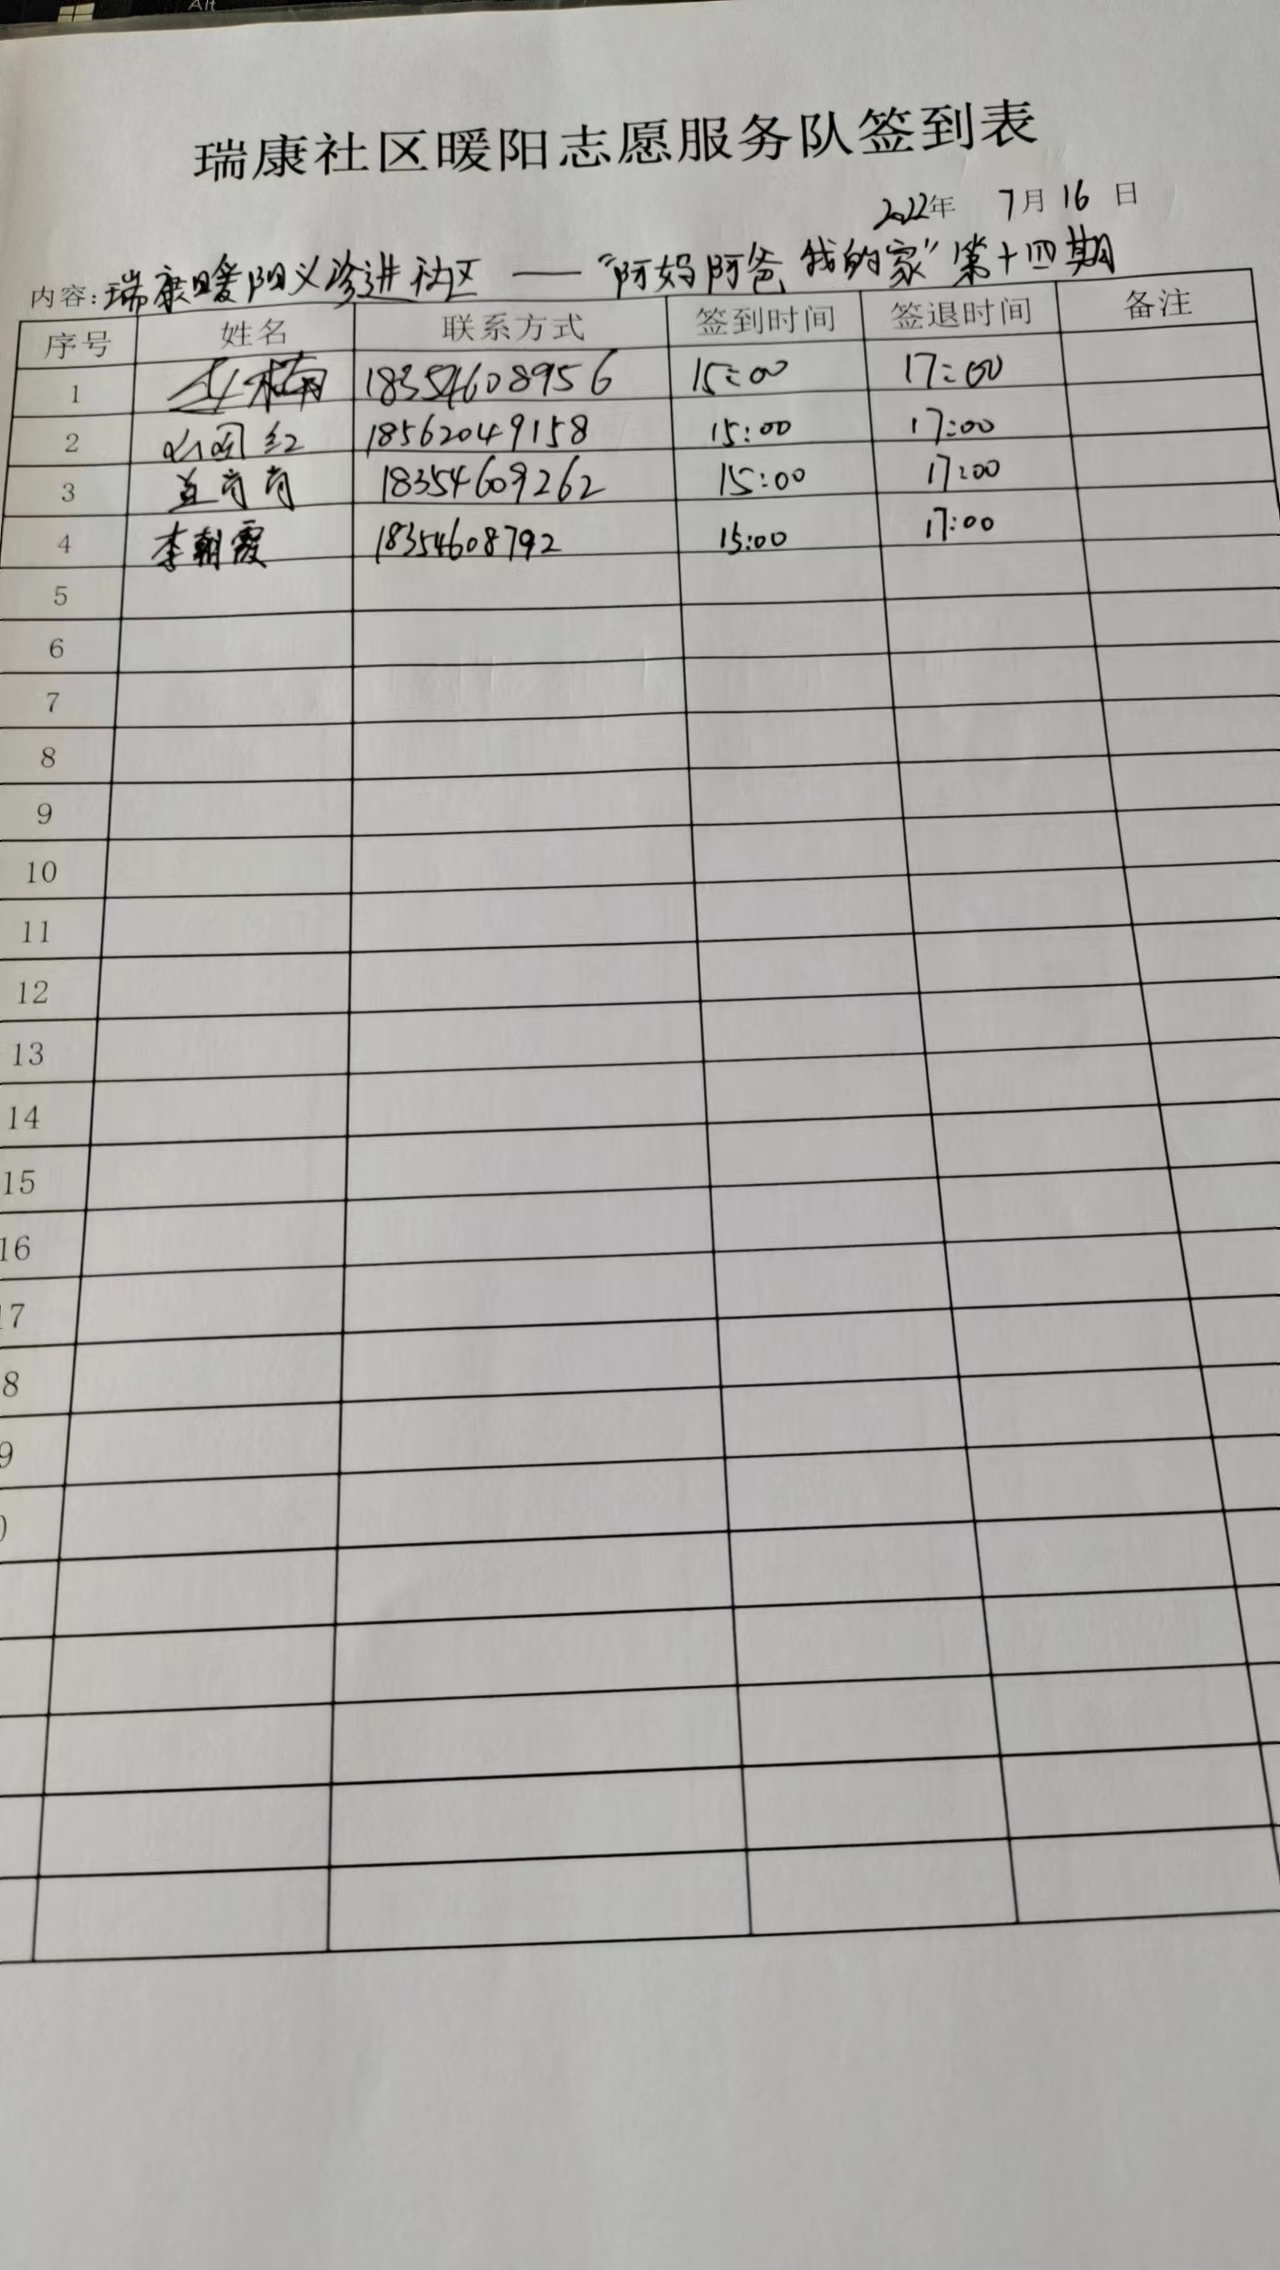 Alt
瑞康社区暖阳志愿服务队签到表
2022年 7月16日
内容:瑞康暖阳义诊进社区 ——“阿妈阿爸 我的家”第十四期
序号 姓名 联系方式 签到时间 签退时间 备注
1 18354608956 15:00 17:00
2 红 18562049158 15:00 17:00
3 18354609262 15:00 17:00
4 李朝霞 18354608792 15:00 17:00
5
6
7
8
9
10
11
12
13
14
15
16
17
8
9
0